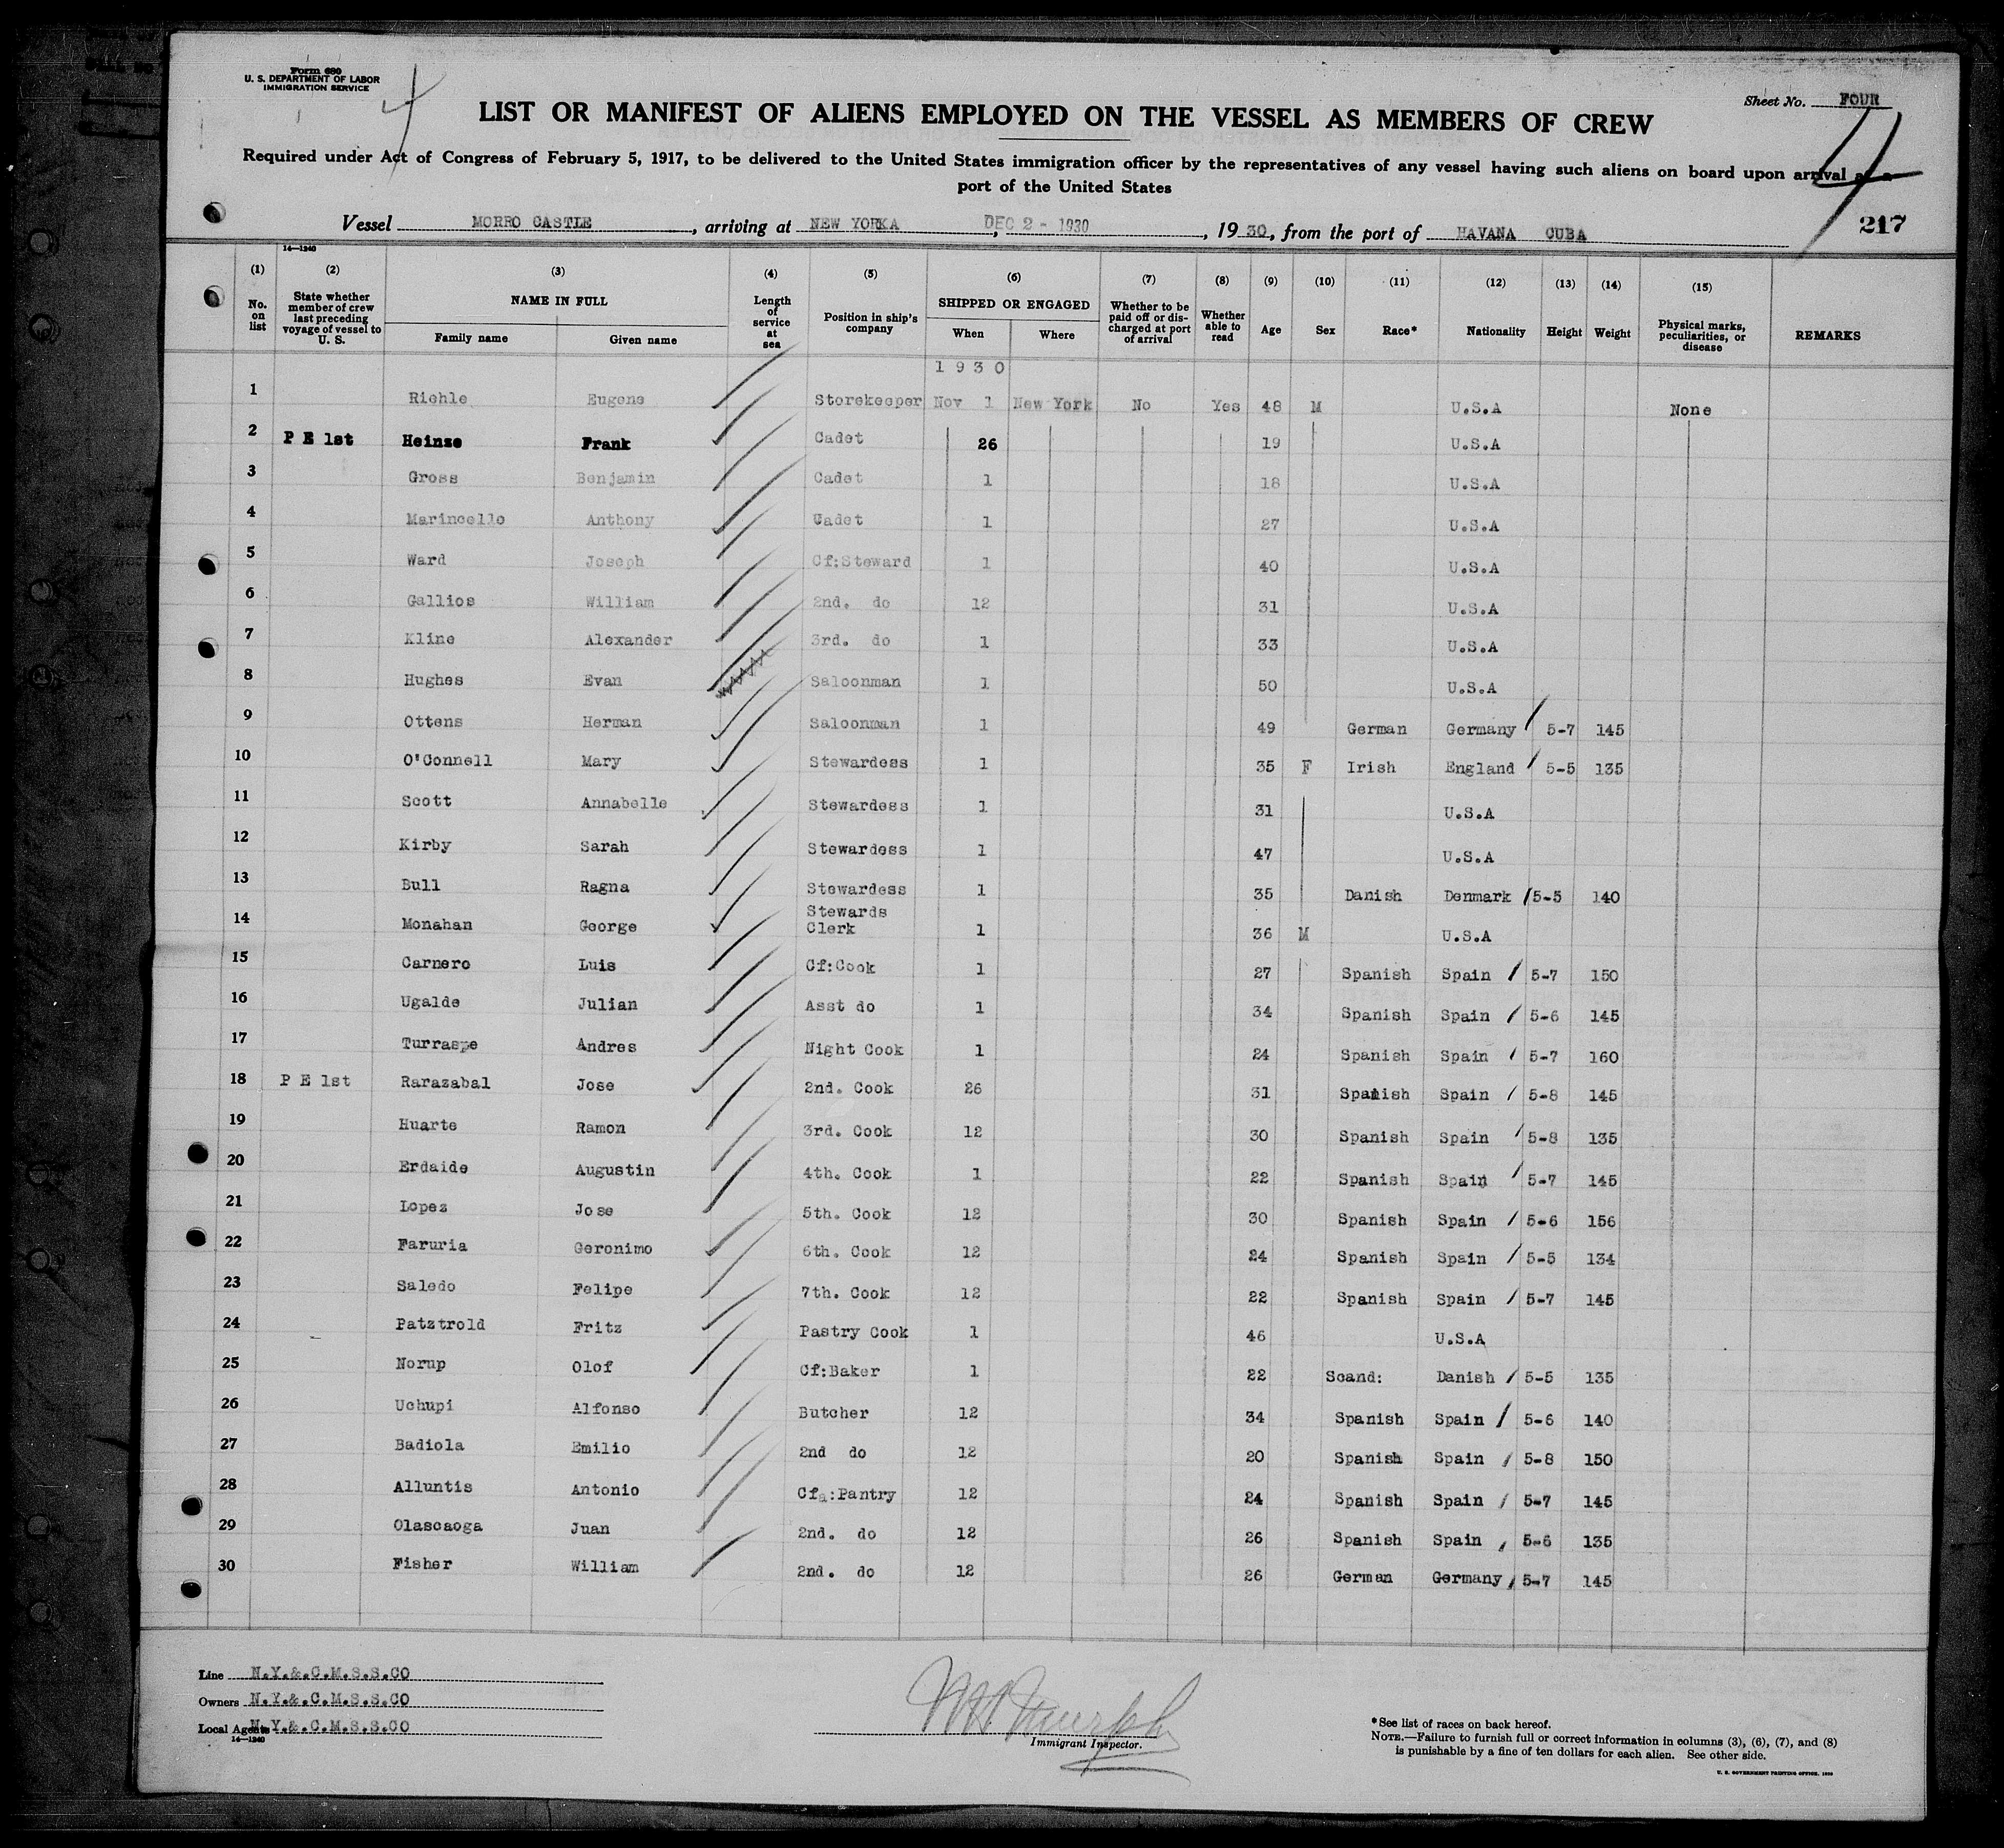 Form 680
U. S. DEPARTMENT OF LABOR
IMMIGRATION SERVICE
4
Sheet No. FOUR
4
LIST OR MANIFEST OF ALIENS EMPLOYED ON THE VESSEL AS MEMBERS OF CREW
Required under Act of Congress of February 5, 1917, to be delivered to the United States immigration officer by the representatives of any vessel having such aliens on board upon arrival at a
port of the United States
217
Vessel MORRO CASTLE, arriving at NEW YORKA, DEC 2 - 1930, 1930, from the port of HAVANA CUBA
14—1240
(1) (2) (3) (4) (5) (6) (7) (8) (9) (10) (11) (12) (13) (14) (15)
No. on list
State whether member of crew last preceding voyage of vessel to U. S.
NAME IN FULL
Family name Given name
Length of service at sea
Position in ship's company
SHIPPED OR ENGAGED
When Where
Whether to be paid off or discharged at port of arrival
Whether able to read
Age Sex Race* Nationality Height Weight
Physical marks, peculiarities, or disease
REMARKS
1930
1 Riehle Eugene Storekeeper Nov 1 New York No Yes 48 M U.S.A None
2 P E 1st Heinze Frank Cadet 26 19 U.S.A
3 Gross Benjamin Cadet 1 18 U.S.A
4 Marincello Anthony Cadet 1 27 U.S.A
5 Ward Joseph Cf:Steward 1 40 U.S.A
6 Gallios William 2nd. do 12 31 U.S.A
7 Kline Alexander 3rd. do 1 33 U.S.A
8 Hughes Evan Saloonman 1 50 U.S.A
9 Ottens Herman Saloonman 1 49 German Germany 5-7 145
10 O'Connell Mary Stewardess 1 35 F Irish England 5-5 135
11 Scott Annabelle Stewardess 1 31 U.S.A
12 Kirby Sarah Stewardess 1 47 U.S.A
13 Bull Ragna Stewardess 1 35 Danish Denmark 5-5 140
14 Monahan George Stewards Clerk 1 36 M U.S.A
15 Carnero Luis Cf:Cook 1 27 Spanish Spain 5-7 150
16 Ugalde Julian Asst do 1 34 Spanish Spain 5-6 145
17 Turraspe Andres Night Cook 1 24 Spanish Spain 5-7 160
18 P E 1st Rarazabal Jose 2nd. Cook 26 31 Spanish Spain 5-8 145
19 Huarte Ramon 3rd. Cook 12 30 Spanish Spain 5-8 135
20 Erdaide Augustin 4th. Cook 1 22 Spanish Spain 5-7 145
21 Lopez Jose 5th. Cook 12 30 Spanish Spain 5-6 156
22 Faruria Geronimo 6th. Cook 12 24 Spanish Spain 5-5 134
23 Saledo Felipe 7th. Cook 12 22 Spanish Spain 5-7 145
24 Patztrold Fritz Pastry Cook 1 46 U.S.A
25 Norup Olof Cf:Baker 1 22 Scand: Danish 5-5 135
26 Uchupi Alfonso Butcher 12 34 Spanish Spain 5-6 140
27 Badiola Emilio 2nd do 12 20 Spanish Spain 5-8 150
28 Alluntis Antonio Cf:Pantry 12 24 Spanish Spain 5-7 145
29 Olascaoga Juan 2nd. do 12 26 Spanish Spain 5-6 135
30 Fisher William 2nd. do 12 26 German Germany 5-7 145
Line N.Y.&.C.M.S.S.CO
Owners N.Y.&.C.M.S.S.CO
Local Agents N.Y.&.C.M.S.S.CO
14—1240
Murphy
Immigrant Inspector.
*See list of races on back hereof.
NOTE.—Failure to furnish full or correct information in columns (3), (6), (7), and (8)
is punishable by a fine of ten dollars for each alien. See other side.
U. S. GOVERNMENT PRINTING OFFICE. 1930